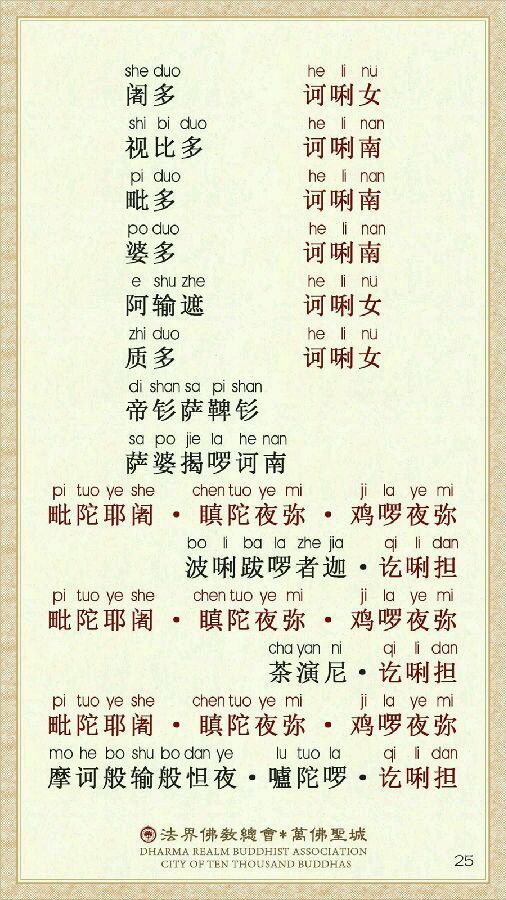 she duo he li nü
阇多 诃唎女
shi bi duo he li nan
视比多 诃唎南
pi duo he li nan
毗多 诃唎南
po duo he li nan
婆多 诃唎南
e shu zhe he li nü
阿输遮 诃唎女
zhi duo he li nü
质多 诃唎女
di shan sa pi shan
帝钐萨鞞钐
sa po jie la he nan
萨婆揭啰诃南
pi tuo ye she chen tuo ye mi ji la ye mi
毗陀耶阇・瞋陀夜弥・鸡啰夜弥
bo li ba la zhe jia qi li dan
波唎跋啰者迦・讫唎担
pi tuo ye she chen tuo ye mi ji la ye mi
毗陀耶阇・瞋陀夜弥・鸡啰夜弥
cha yan ni qi li dan
茶演尼・讫唎担
pi tuo ye she chen tuo ye mi ji la ye mi
毗陀耶阇・瞋陀夜弥・鸡啰夜弥
mo he bo shu bo dan ye lu tuo la qi li dan
摩诃般输般怛夜・嚧陀啰・讫唎担
法界佛教總會・萬佛聖城
DHARMA REALM BUDDHIST ASSOCIATION
CITY OF TEN THOUSAND BUDDHAS
25